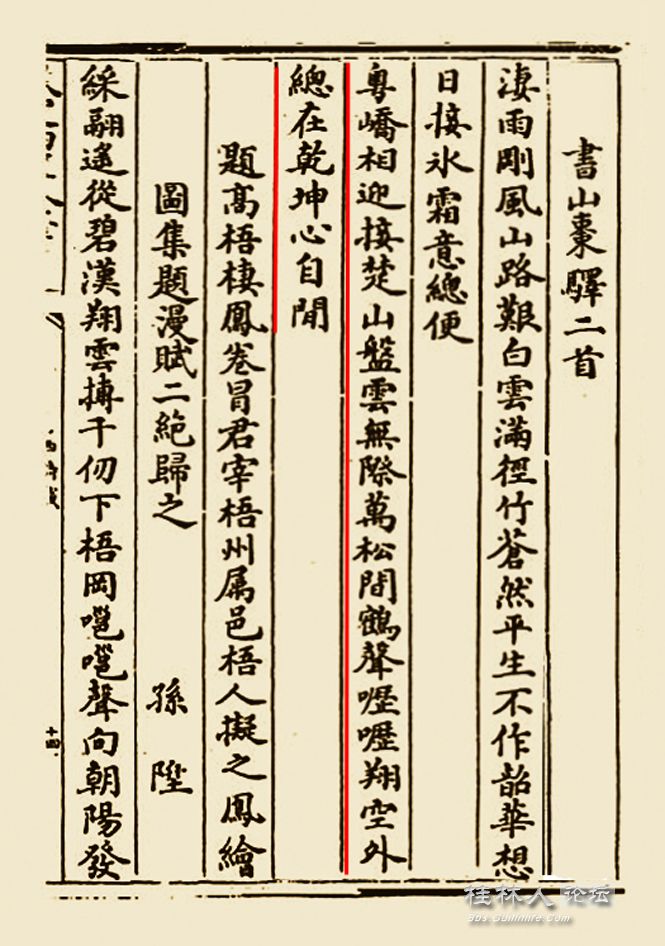 書山棗驛二首
淒雨剛風山路艱白雲滿徑竹蒼然平生不作韶華想
日接氷霜意總便
粤嶠相迎接楚山盤雲無際萬松閒鶴聲嚦嚦翔空外
總在乾坤心自閒
題高梧棲鳳卷冒君宰梧州属邑梧人擬之鳳繪
圖集題漫賦二絶歸之 孫陞
綵翮遙從碧漢翔雲摶千仞下梧岡嗈嗈聲向朝陽發
十四
桂林人论坛
bbs.Guilinlife.Com